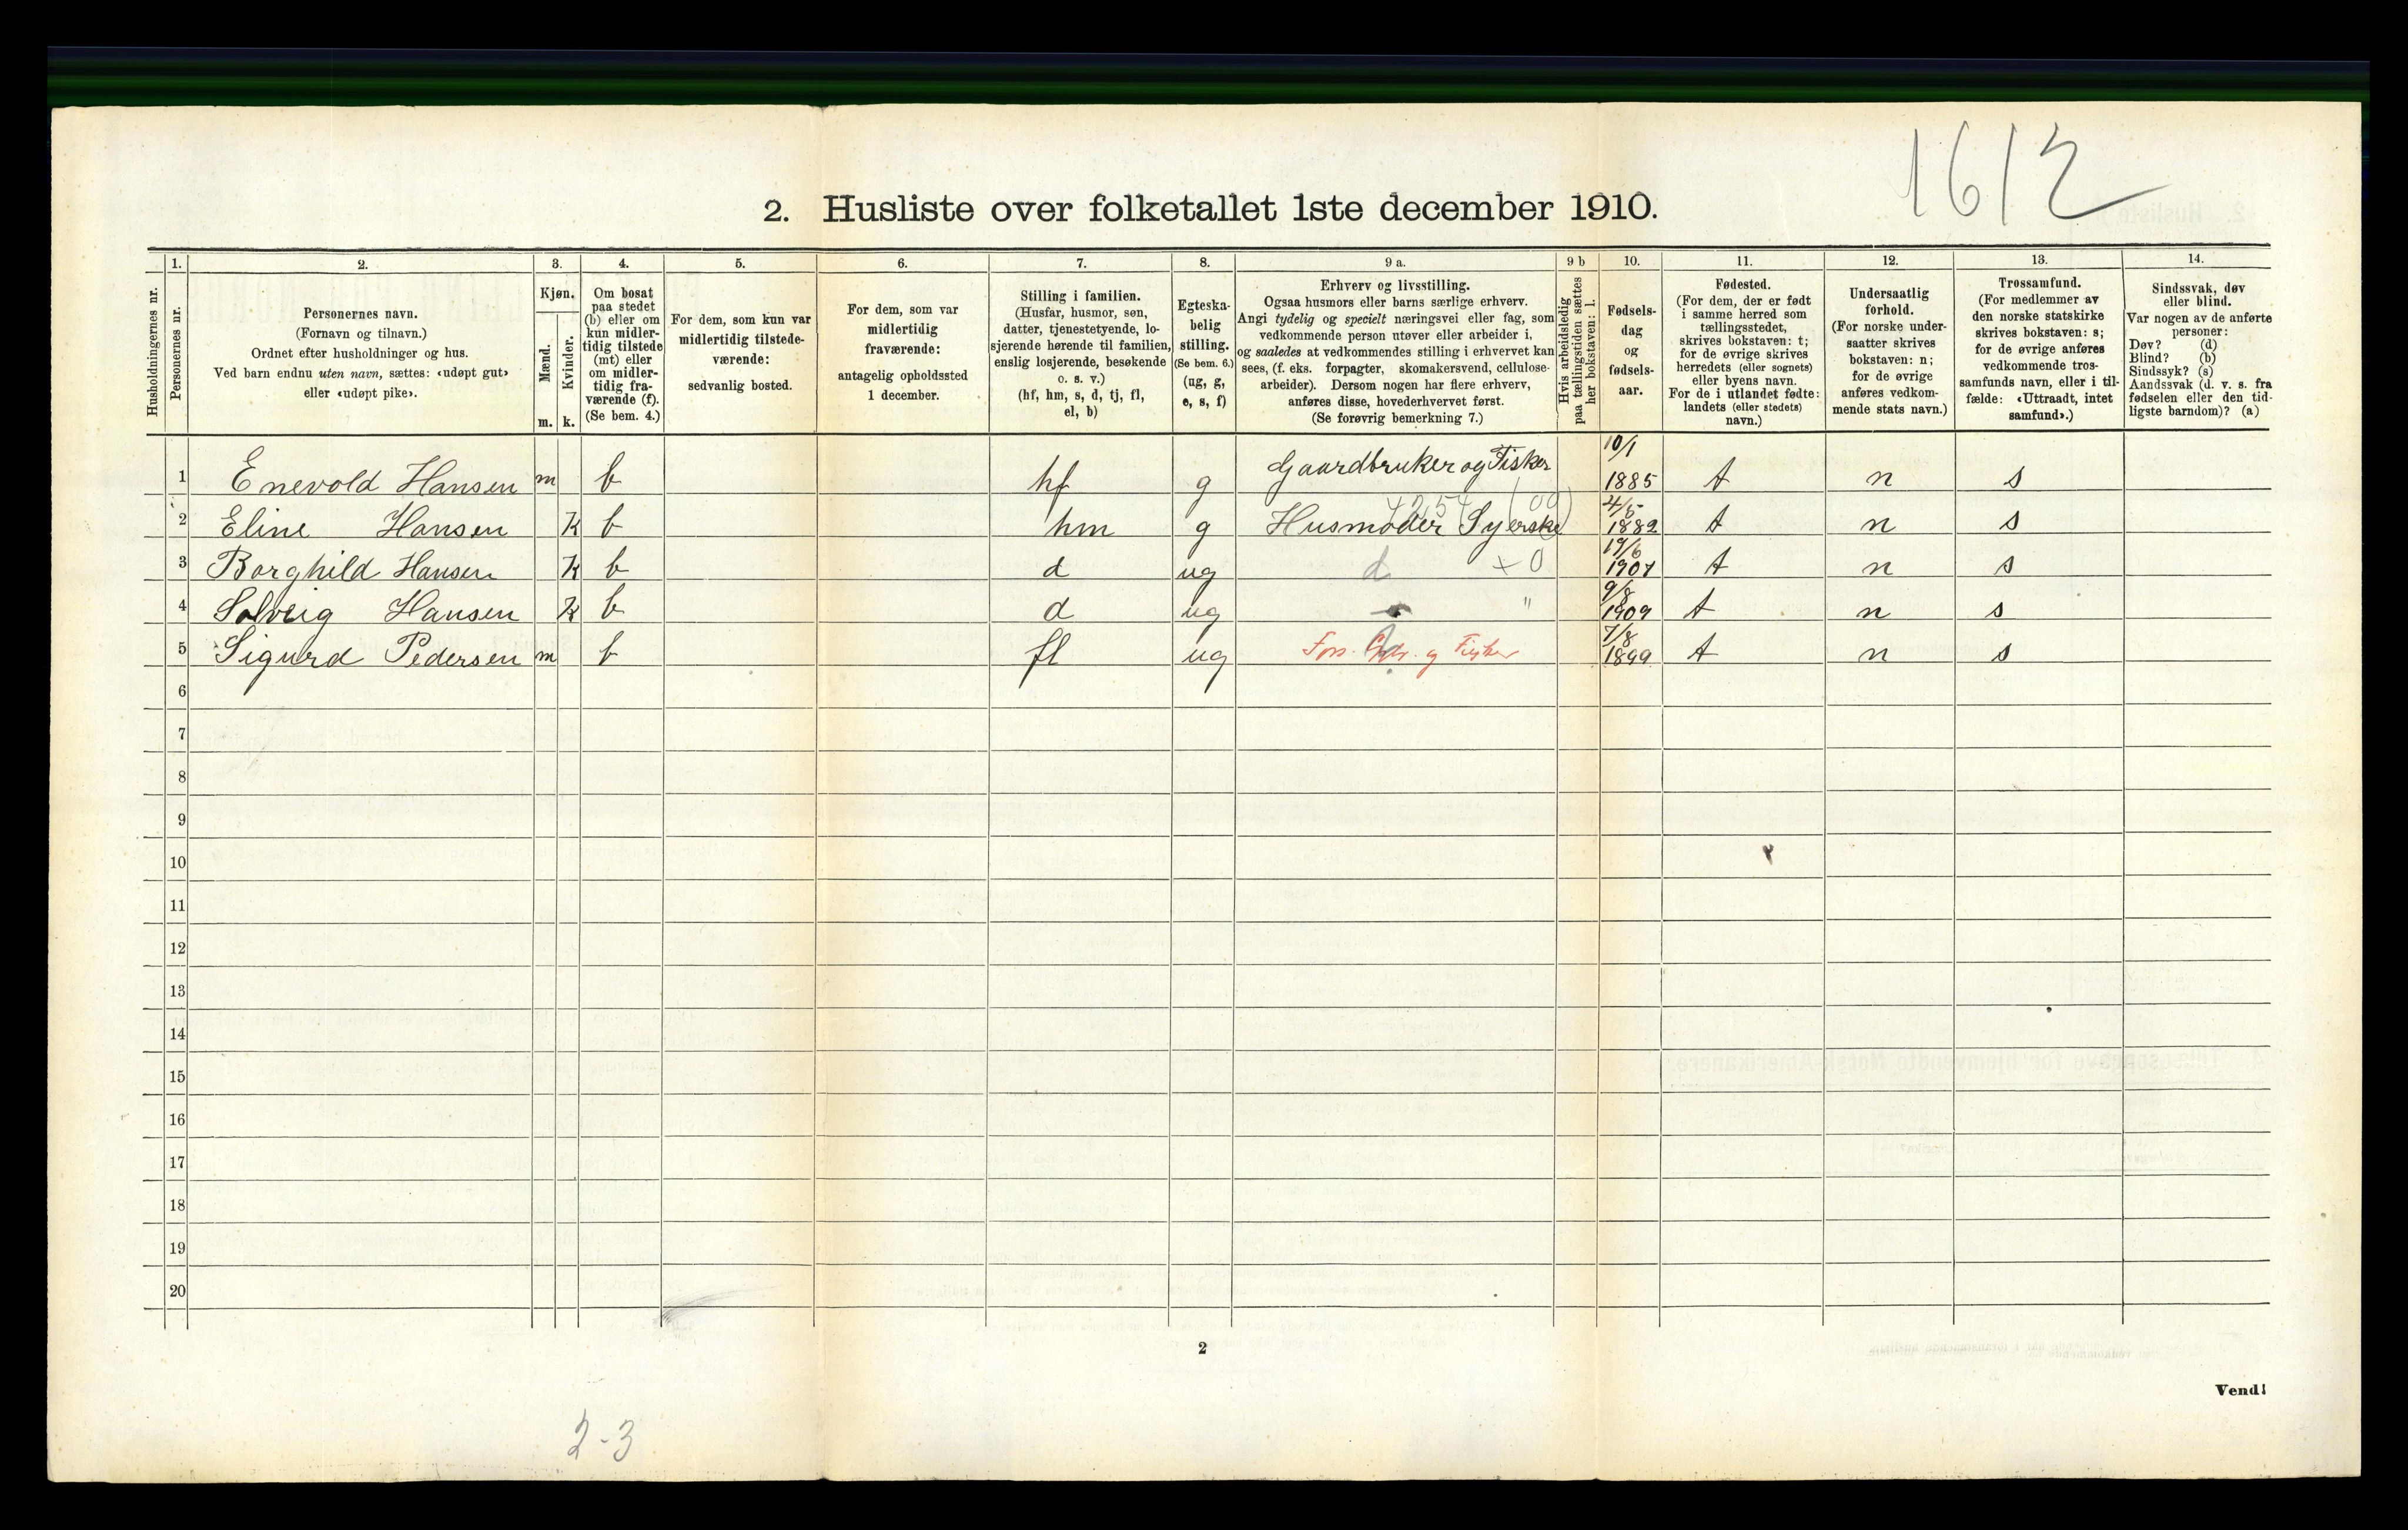 1612
2. Husliste over folketallet 1ste december 1910.
Husholdningernes nr.
1.
Personernes nr.
2.
Personernes navn.
(Fornavn og tilnavn.)
Ordnet efter husholdninger og hus.
Ved barn endnu uten navn, sættes: «udøpt gut»
eller «udøpt pike».
3.
Kjøn.
Mænd.
Kvinder.
m. k.
4.
Om bosat
paa stedet
(b) eller om
kun midler-
tidig tilstede
(mt) eller
om midler-
tidig fra-
værende (f).
(Se bem. 4.)
5.
For dem, som kun var
midlertidig tilstede-
værende:
sedvanlig bosted.
6.
For dem, som var
midlertidig
fraværende:
antagelig opholdssted
1 december.
7.
Stilling i familien.
(Husfar, husmor, søn,
datter, tjenestetyende, lo-
sjerende hørende til familien,
enslig losjerende, besøkende
o. s. v.)
(hf, hm, s, d, tj, fl,
el, b)
8.
Egteska-
belig
stilling.
(Se bem. 6.)
(ug, g,
e, s, f)
9 a.
Erhverv og livsstilling.
Ogsaa husmors eller barns særlige erhverv.
Angi tydelig og specielt næringsvei eller fag, som
vedkommende person utøver eller arbeider i,
og saaledes at vedkommendes stilling i erhvervet kan
sees, (f. eks. forpagter, skomakersvend, cellulose-
arbeider). Dersom nogen har flere erhverv,
anføres disse, hovederhvervet først.
(Se forøvrig bemerkning 7.)
9 b
Hvis arbeidsledig
paa tællingstiden sættes
her bokstaven: l.
10.
Fødsels-
dag
og
fødsels-
aar.
11.
Fødested.
(For dem, der er født
i samme herred som
tællingsstedet,
skrives bokstaven: t;
for de øvrige skrives
herredets (eller sognets)
eller byens navn.
For de i utlandet fødte:
landets (eller stedets)
navn.)
12.
Undersaatlig
forhold.
(For norske under-
saatter skrives
bokstaven: n;
for de øvrige
anføres vedkom-
mende stats navn.)
13.
Trossamfund.
(For medlemmer av
den norske statskirke
skrives bokstaven: s;
for de øvrige anføres
vedkommende tros-
samfunds navn, eller i til-
fælde: «Uttraadt, intet
samfund».)
14.
Sindssvak, døv
eller blind.
Var nogen av de anførte
personer:
Døv? (d)
Blind? (b)
Sindssyk? (s)
Aandssvak (d. v. s. fra
fødselen eller den tid-
ligste barndom)? (a)
1 Enevold Hansen m b hf g Gaardbruker og Fisker 10/1 1885 t n s
2 Eline Hansen K b hm g Husmoder Syerske 4/5 1882 t n s
3 Borghild Hansen K b d ug d + 0 19/6 1907 t n s
4 Solveig Hansen K b d ug " 9/8 1909 t n s
5 Sigurd Pedersen m b fl ug Fors. og Fisker 7/8 1899 t n s
6
7
8
9
10
11
12
13
14
15
16
17
18
19
20
2
Vend!
2-3